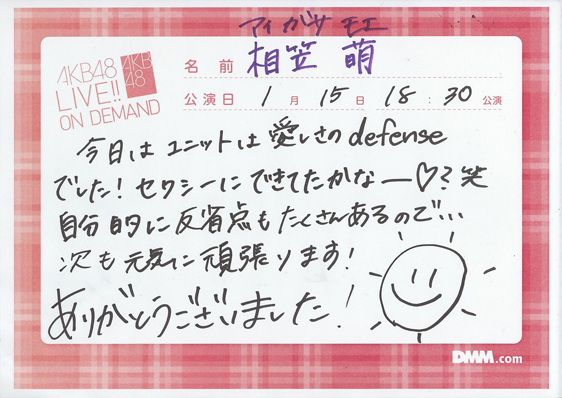 AKB48
LIVE!!
ON DEMAND
AKB
48
アイガサ モエ
名前 相笠 萌
公演日 1月 15日 18:30 公演
今日は ユニットは 愛しさの defense
でした! セクシーにできてたかなー♡?笑
自分的に反省点もたくさんあるので…
次も元気に頑張ります!
ありがとうございました!
DMM.com